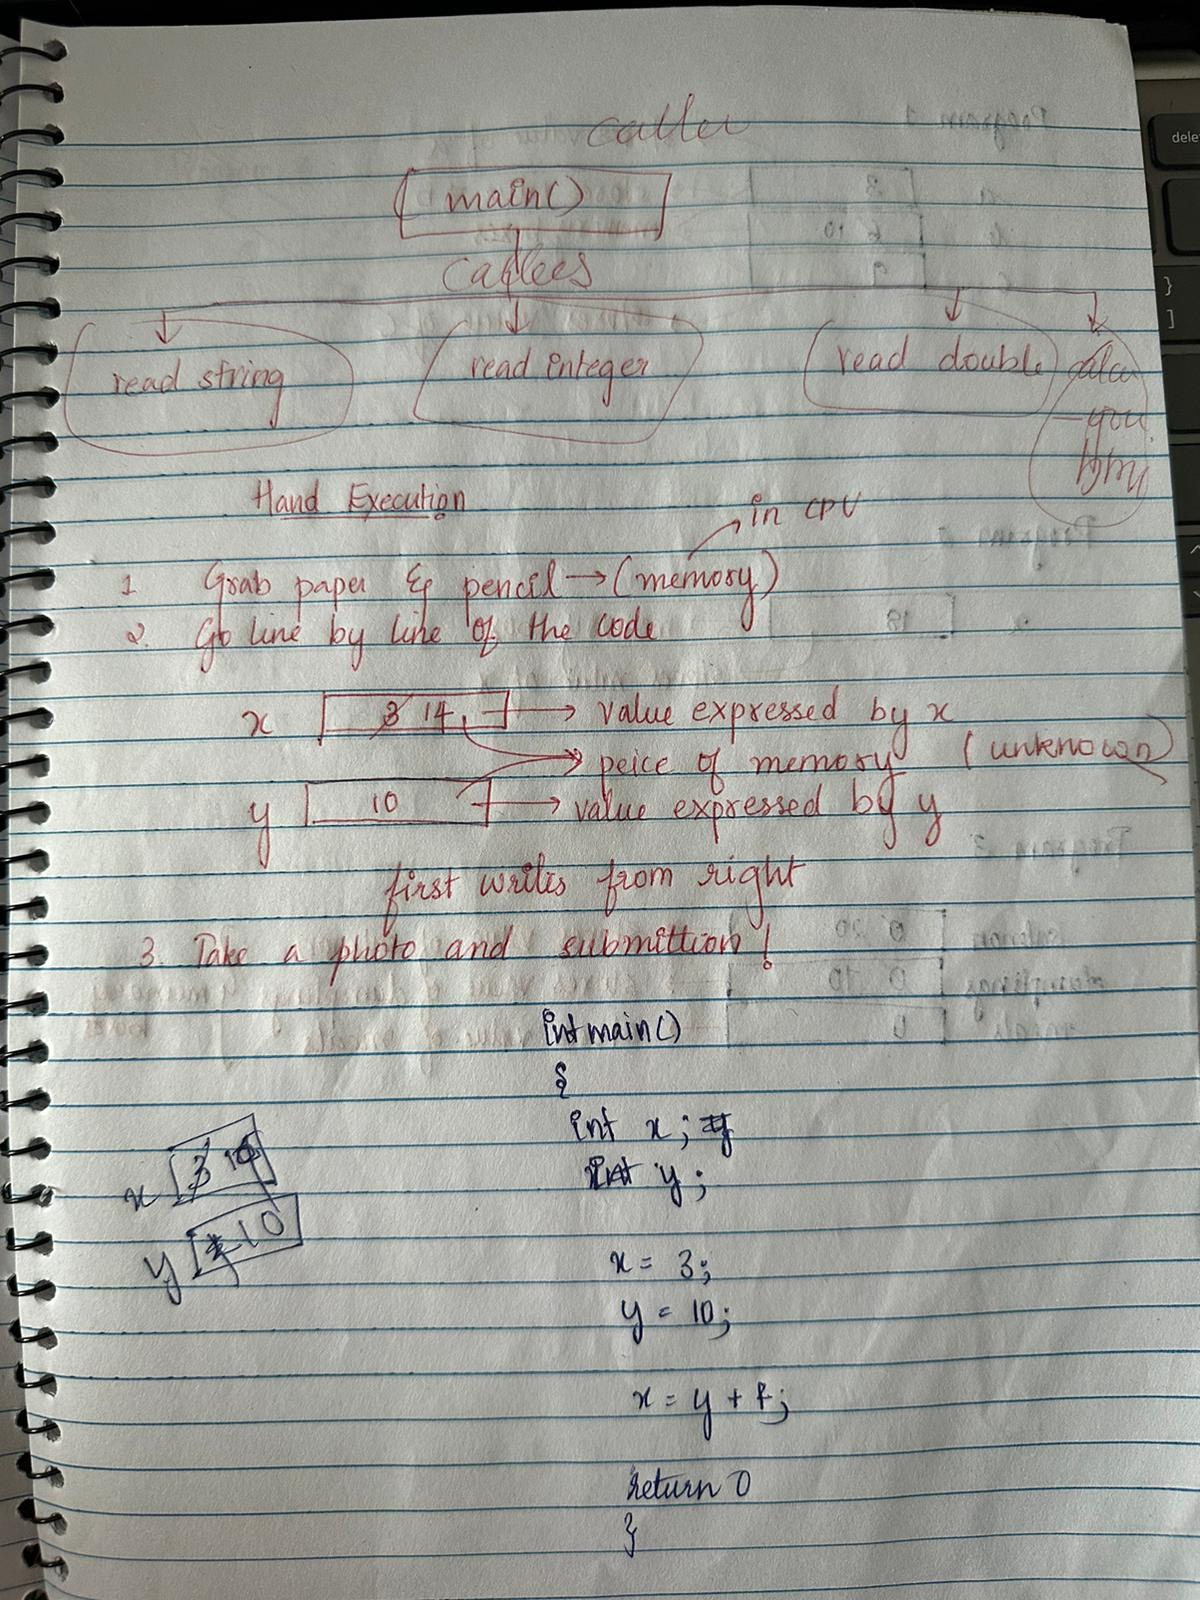 caller
main()
callees
read string read integer read double
you
Hand Execution
in CPU
1 Grab paper & pencil → (memory)
2. Go line by line of the code
x 3 14 → value expressed by x
peice of memory (unknown)
y 10 → value expressed by y
first writes from right
3. Take a photo and submittion!
int main()
{
int x;
int y;
x 3 14
y 10
x = 3;
y = 10;
x = y + 4;
return 0
}